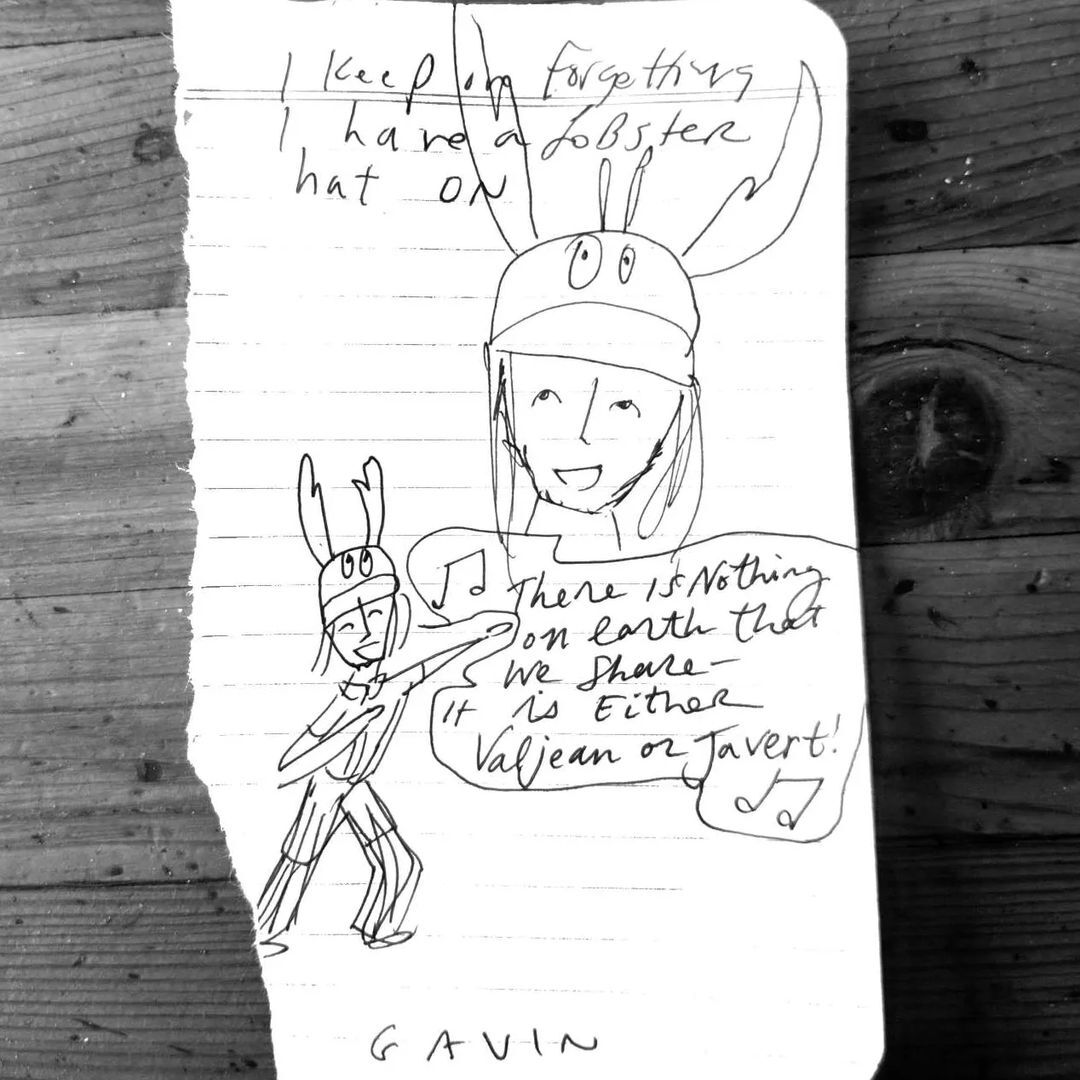 I keep on forgetting
I have a lobster
hat on
♫ There is Nothing
on earth that
we share—
It is Either
Valjean or Javert!
♫
GAVIN